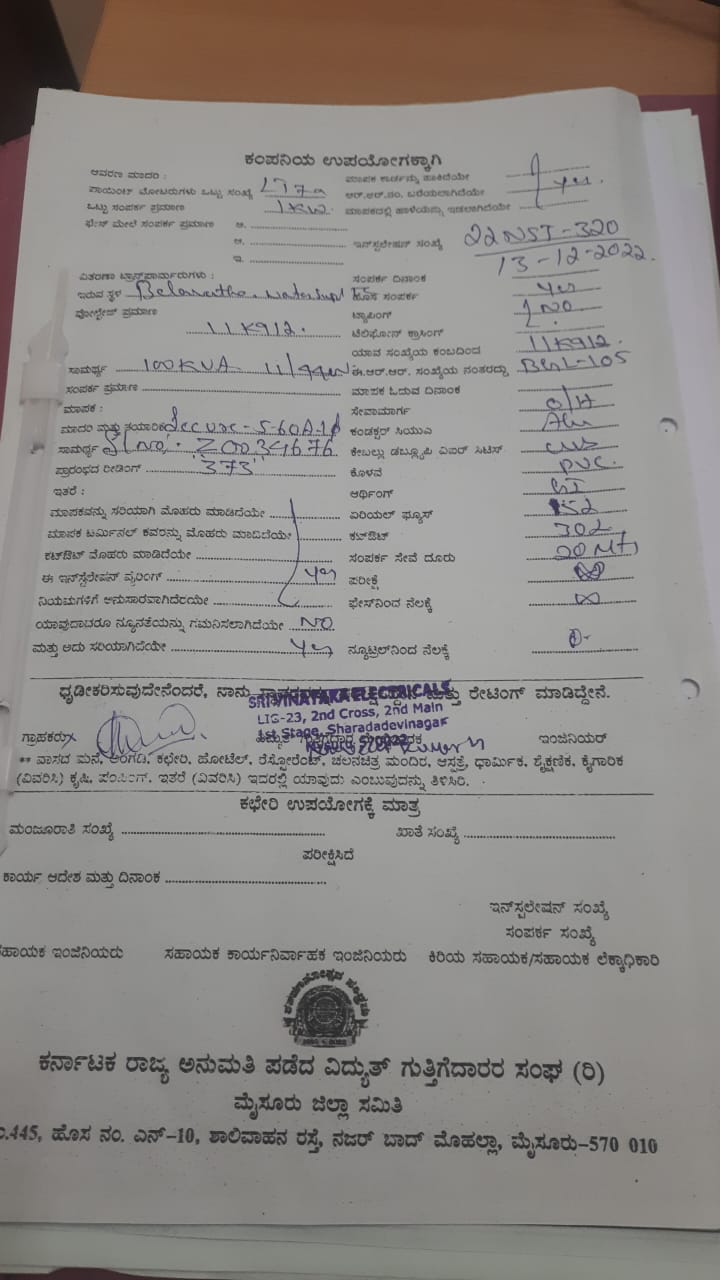 ಕಂಪನಿಯ ಉಪಯೋಗಕ್ಕಾಗಿ
ಆವರಣ ಮಾದರಿ : ಮಾಪಕ ಕಾರ್ಡನ್ನು ಹಾಕಿದೆಯೇ
ಪಾಯಿಂಟ್ ಮೋಟರುಗಳು ಒಟ್ಟು ಸಂಖ್ಯೆ LT7a ಆರ್.ಆರ್.ನಂ. ಬರೆಯಲಾಗಿದೆಯೇ yes.
ಒಟ್ಟು ಸಂಪರ್ಕ ಪ್ರಮಾಣ 1KW. ಮಾಪಕದಲ್ಲಿ ಹಾಳೆಯನ್ನು ಇಡಲಾಗಿದೆಯೇ
ಫೇಸ್ ಮೇಲೆ ಸಂಪರ್ಕ ಪ್ರಮಾಣ ಆ.
ಆ. ಇನ್‌ಸ್ಟಲೇಷನ್ ಸಂಖ್ಯೆ 22NST-320
ಇ. 13-12-2022.
ವಿತರಣಾ ಟ್ರಾನ್ಸ್‌ಫಾರ್ಮರುಗಳು : ಸಂಪರ್ಕ ದಿನಾಂಕ
ಇರುವ ಸ್ಥಳ ಹೊಸ ಸಂಪರ್ಕ yes
ವೋಲ್ಟೇಜ್ ಪ್ರಮಾಣ ಟ್ಯಾಪಿಂಗ್ NO
11K912. ಟೆಲಿಫೋನ್ ಕ್ರಾಸಿಂಗ್
ಯಾವ ಸಂಖ್ಯೆಯ ಕಂಬದಿಂದ 11K912.
ಸಾಮರ್ಥ್ಯ 100KVA ಈ.ಆರ್.ಆರ್. ಸಂಖ್ಯೆಯ ನಂತರದ್ದು
ಸಂಪರ್ಕ ಪ್ರಮಾಣ ಮಾಪಕ ಓದುವ ದಿನಾಂಕ
ಮಾಪಕ : ಸೇವಾಮಾರ್ಗ O/H
ಮಾದರಿ ಮತ್ತು ತಯಾರಿಕೆ Secure-5-60A-1ϕ ಕಂಡಕ್ಟರ್ ಸಿಯುಎ Alu
ಸಾಮರ್ಥ್ಯ Sl no. Z0034676 ಕೇಬಲ್ಲು ಡಬ್ಲ್ಯೂಪಿ ವಿಐರ್ ಸಿಟಿಸ್
ಪ್ರಾರಂಭದ ರೀಡಿಂಗ್ "373" ಕೊಳವೆ PVC.
ಇತರೆ : ಆರ್ಥಿಂಗ್ GI
ಮಾಪಕವನ್ನು ಸರಿಯಾಗಿ ಮೊಹರು ಮಾಡಿದೆಯೇ ಏರಿಯಲ್ ಫ್ಯೂಸ್
ಮಾಪಕ ಟರ್ಮಿನಲ್ ಕವರನ್ನು ಮೊಹರು ಮಾಡಿದೆಯೇ ಕಟ್‌ಔಟ್
ಕಟ್‌ಔಟ್ ಮೊಹರು ಮಾಡಿದೆಯೇ ಸಂಪರ್ಕ ಸೇವೆ ದೂರು 20 Mts
ಈ ಇನ್‌ಸ್ಟಲೇಶನ್ ವೈರಿಂಗ್ yes ಪರೀಕ್ಷೆ
ನಿಯಮಗಳಿಗೆ ಅನುಸಾರವಾಗಿದೆಯೇ ಫೇಸ್‌ನಿಂದ ನೆಲಕ್ಕೆ ∞
ಯಾವುದಾದರೂ ನ್ಯೂನತೆಯನ್ನು ಗಮನಿಸಲಾಗಿದೆಯೇ NO
ಮತ್ತು ಅದು ಸರಿಯಾಗಿದೆಯೇ yes ನ್ಯೂಟ್ರಲ್‌ನಿಂದ ನೆಲಕ್ಕೆ
ಧೃಡೀಕರಿಸುವುದೇನೆಂದರೆ, ನಾನು ಮತ್ತು ರೇಟಿಂಗ್ ಮಾಡಿದ್ದೇನೆ.
SRI VINAYAKA ELECTRICALS
LIG-23, 2nd Cross, 2nd Main
1st Stage, Sharadadevinagar
ಗ್ರಾಹಕರು ಇಂಜಿನಿಯರ್
** ವಾಸದ ಮನೆ, ಅಂಗಡಿ, ಕಛೇರಿ, ಹೋಟೆಲ್, ರೆಸ್ಟೋರೆಂಟ್, ಚಲನಚಿತ್ರ ಮಂದಿರ, ಆಸ್ಪತ್ರೆ, ಧಾರ್ಮಿಕ, ಶೈಕ್ಷಣಿಕ, ಕೈಗಾರಿಕೆ
(ವಿವರಿಸಿ) ಕೃಷಿ, ಪಂಪಿಂಗ್, ಇತರೆ (ವಿವರಿಸಿ) ಇದರಲ್ಲಿ ಯಾವುದು ಎಂಬುವುದನ್ನು ತಿಳಿಸಿರಿ.
ಕಛೇರಿ ಉಪಯೋಗಕ್ಕೆ ಮಾತ್ರ
ಮಂಜೂರಾತಿ ಸಂಖ್ಯೆ ಖಾತೆ ಸಂಖ್ಯೆ
ಪರೀಕ್ಷಿಸಿದೆ
ಕಾರ್ಯ ಆದೇಶ ಮತ್ತು ದಿನಾಂಕ
ಇನ್‌ಸ್ಟಲೇಷನ್ ಸಂಖ್ಯೆ
ಸಂಪರ್ಕ ಸಂಖ್ಯೆ
ಸಹಾಯಕ ಇಂಜಿನಿಯರು ಸಹಾಯಕ ಕಾರ್ಯನಿರ್ವಾಹಕ ಇಂಜಿನಿಯರು ಕಿರಿಯ ಸಹಾಯಕ/ಸಹಾಯಕ ಲೆಕ್ಕಾಧಿಕಾರಿ
ಕರ್ನಾಟಕ ರಾಜ್ಯ ಅನುಮತಿ ಪಡೆದ ವಿದ್ಯುತ್ ಗುತ್ತಿಗೆದಾರರ ಸಂಘ (ರಿ)
ಮೈಸೂರು ಜಿಲ್ಲಾ ಸಮಿತಿ
.445, ಹೊಸ ನಂ. ಎನ್-10, ಶಾಲಿವಾಹನ ರಸ್ತೆ, ನಜರ್ ಬಾದ್ ಮೊಹಲ್ಲಾ, ಮೈಸೂರು-570 010